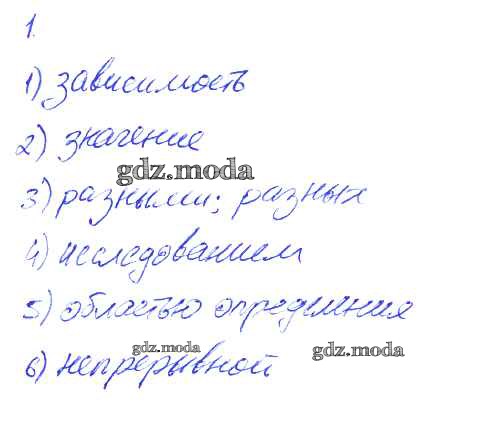 1.
1) зависимость
2) значение
gdz.moda
3) разными; разных
4) исследованием
5) областью определения
gdz.moda
6) непрерывной
gdz.moda